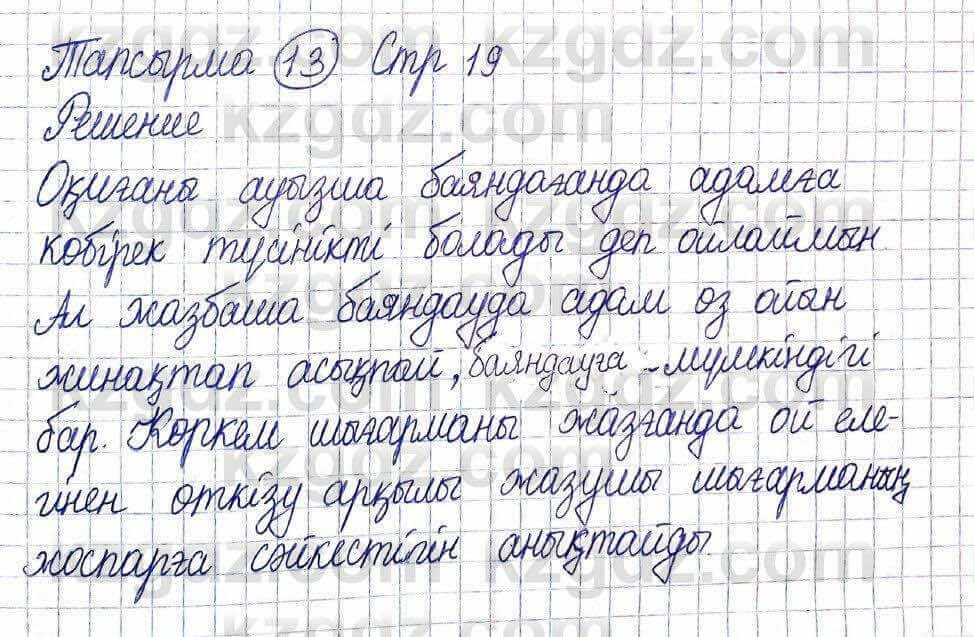 Тапсырма 13 Стр 19
Решение
Оқиғаны ауызша баяндағанда адамға
көбірек түсінікті болады деп ойлаймын
Ал жазбаша баяндауда адам өз ойын
жинақтап асықпай, баяндауға мүмкіндігі
бар. Көркем шығарманы жазғанда ой еле-
гінен өткізу арқылы жазушы шығарманың
жоспарға сәйкестігін анықтайды
kzgdz.com